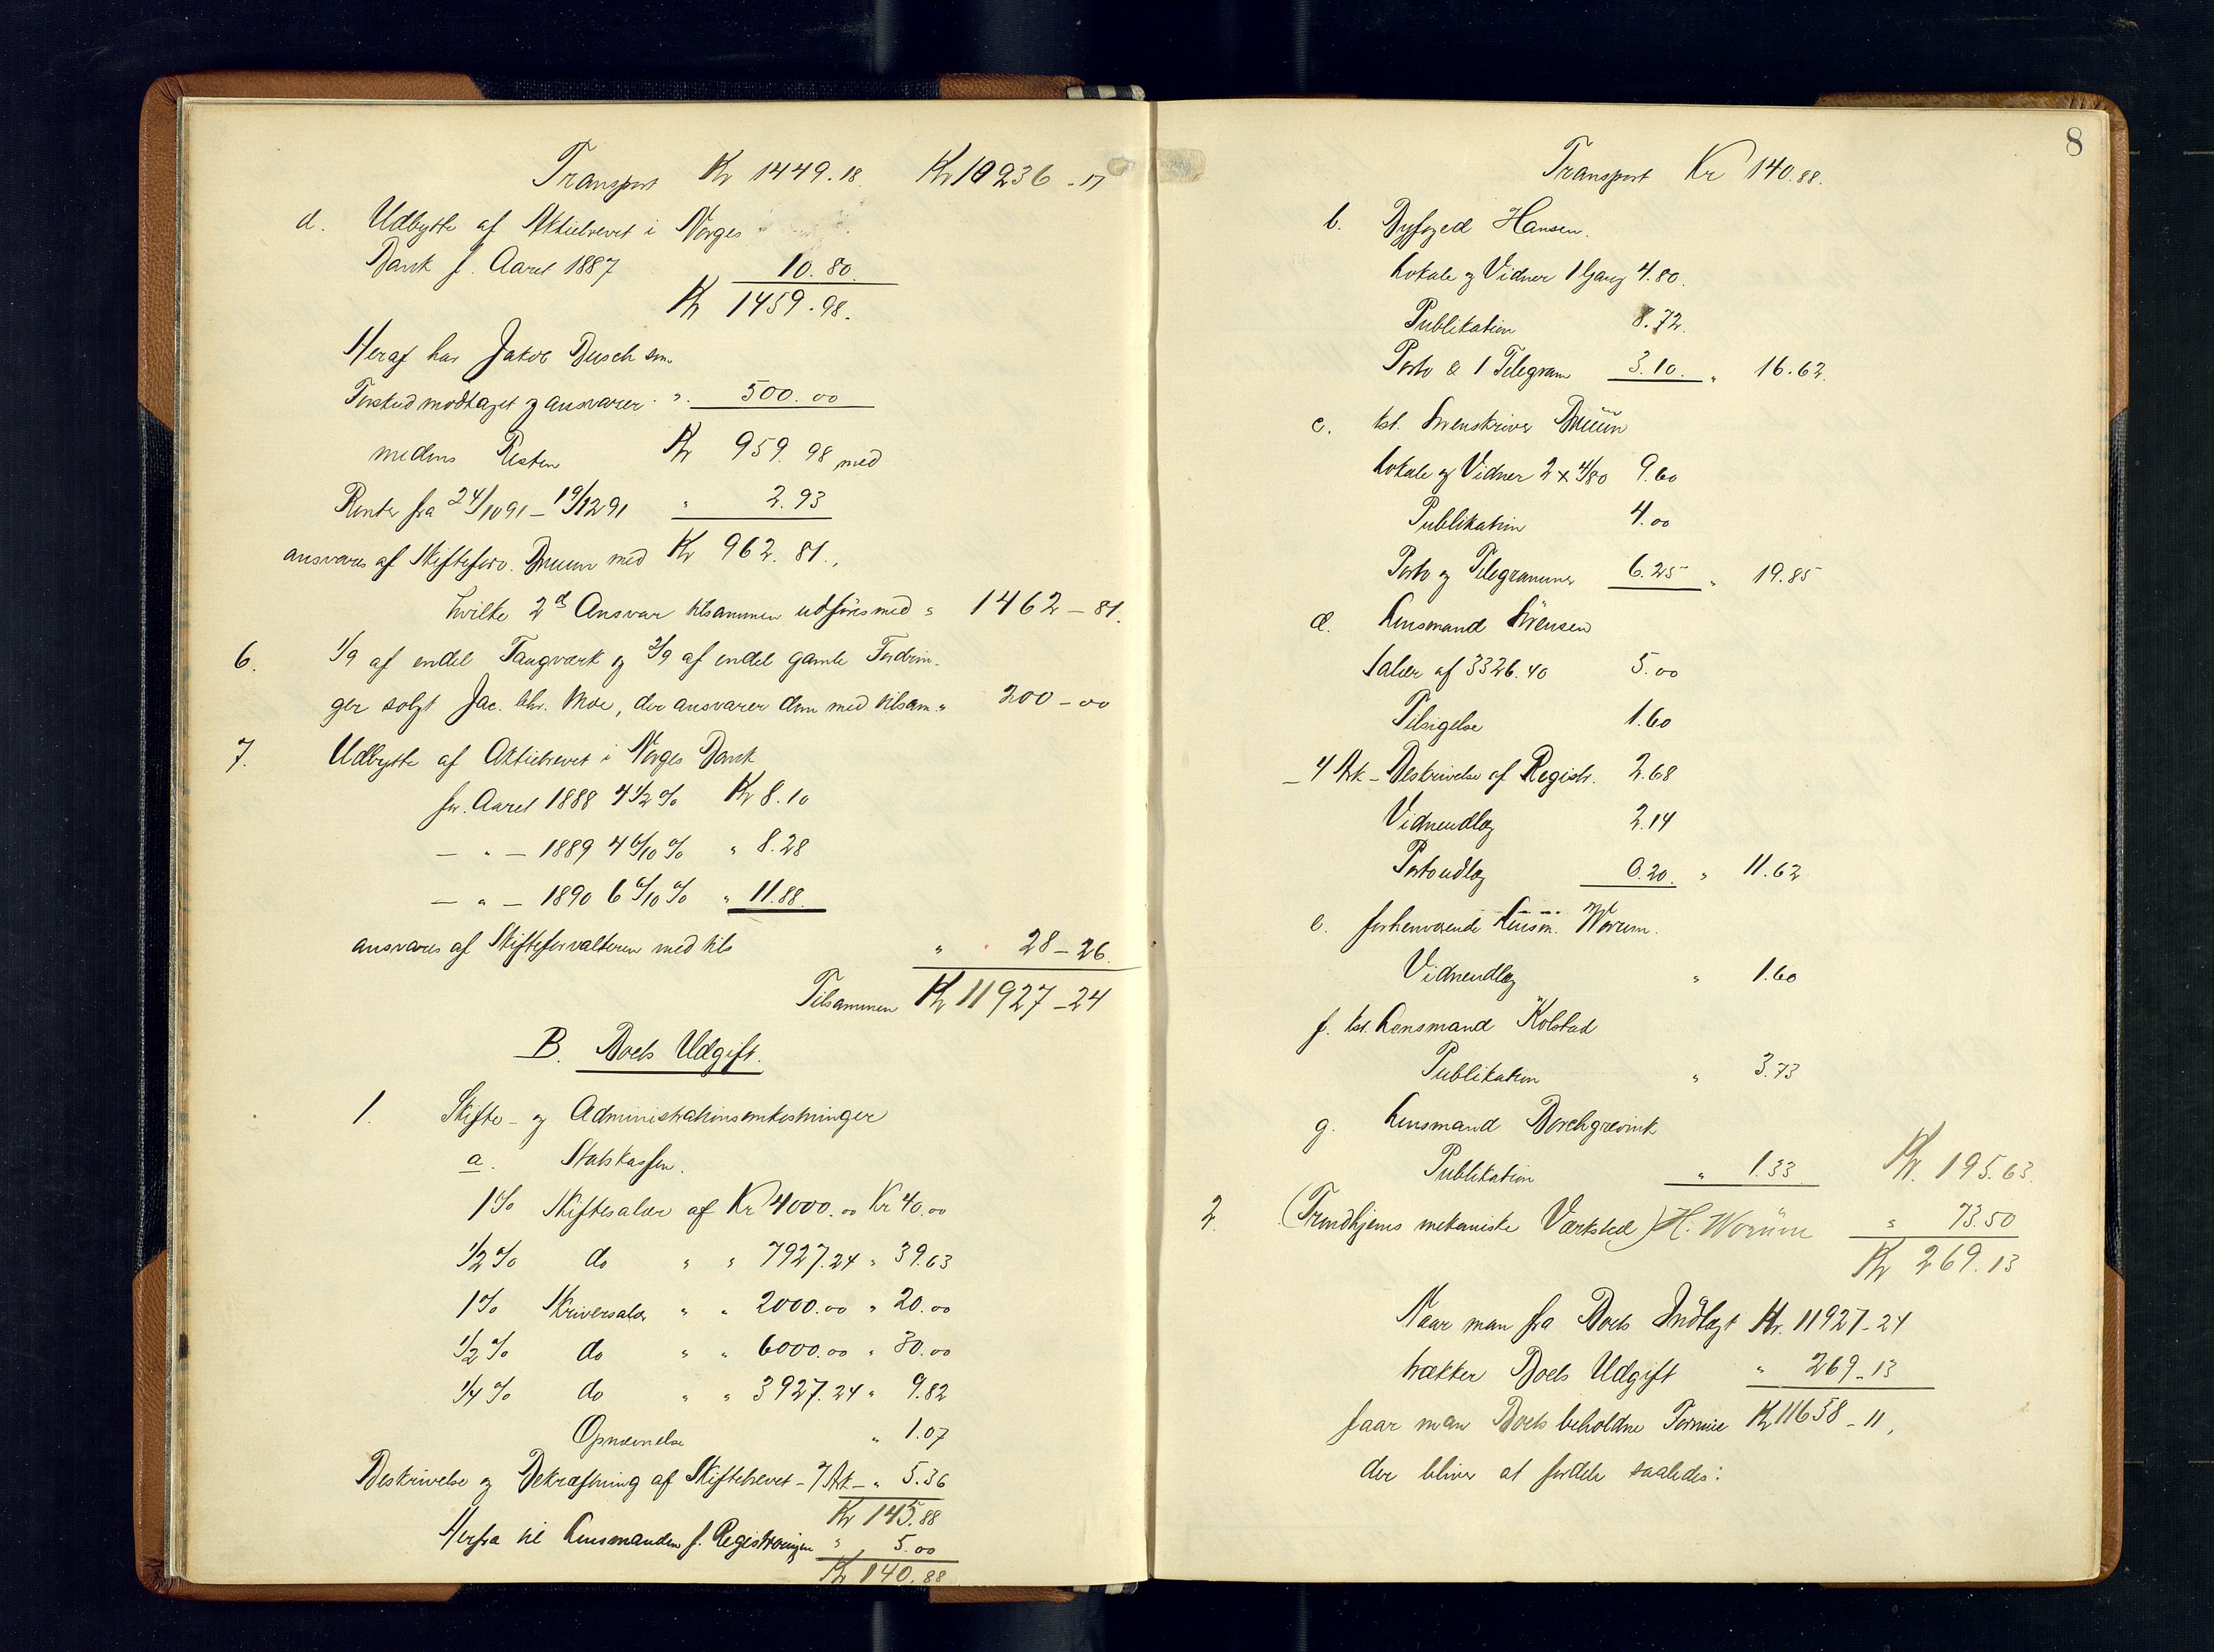 Transport Kr 1449.18 Kr 10236-17
d. Udbytte af Aktiebrevet i Norges
Bank f. Aaret 1887 10.80.
Kr 1459.98.
Heraf har Jakob Busch som
Forskud modtaget og ansvarer " 500.00
medens Resten Kr 959.98 med
Renter fra 24/10 91 - 19/12 91 " 2.93
ansvares af Skifteforv. Bruun med Kr 962.81.,
hvilke 2de Ansvar tilsammen udføres med " 1462-81.
6. 1/9 af endel Taugværk og 2/9 af endel gamle Fordrin-
ger solgt Jac. Chr. Moe, der ansvarer dem med tilsam. " 200-00
7. Udbytte af Aktiebrevet i Norges Bank
for Aaret 1888 4 1/2 % Kr 8.10
— " — 1889 4 6/10 % " 8.28
— " — 1890 6 6/10 % " 11.88.
ansvares af Skifteforvalteren med tils " 28-26.
Tilsammen Kr 11927-24
B. Boets Udgift.
1. Skifte- og Administrationsomkostninger
a. Statskassen.
1% Skiftesalær af Kr 4000.00 Kr 40.00
1/2 % do " " 7927.24 " 39.63
1% Skriversalær " " 2000.00 " 20.00
1/2 % do " " 6000.00 " 30.00
1/4 % do " " 3927.24 " 9.82
Opnævnelse " 1.07
Beskrivelse og Bekræftning af Skiftebrevet - 7 Ark - " 5.36
Kr 145.88
Herfra til Lensmanden f. Registreringen " 5.00
Kr 140.88
8
Transport Kr 140.88.
b. Byfoged Hansen.
Lokale og Vidner 1 Gang 4.80.
Publikation 8.72.
Porto & 1 Telegram 3.10. " 16.62.
c. kst. Sorenskriver Bruun
Lokale og Vidner 2 x 4/80 9.60
Publikation 4.00
Porto og Telegrammer 6.25 " 19.85
d. Lensmand Svensen
Salær af 3326.40 5.00
Tilsigelse 1.60
- 4 Ark - Beskrivelse af Registr. 2.68
Vidneudlæg 2.14
Portoudlæg 0.20. " 11.62
e. forhenværende Lensm. Worum.
Vidneudlæg " 1.60
f. kst. Lensmand Kolstad
Publikation " 3.73
g. Lensmand Borchgrevink
Publikation " 1.33 Kr. 195.63.
2. (Trondhjems mekaniske Værksted) H. Worum " 73.50
Kr 269.13
Naar man fra Boets Indtægt Kr. 11927-24
trækker Boets Udgift " 269-13
faar man Boets beholdne Formue Kr 11658-11,
der bliver at fordele saaledes: